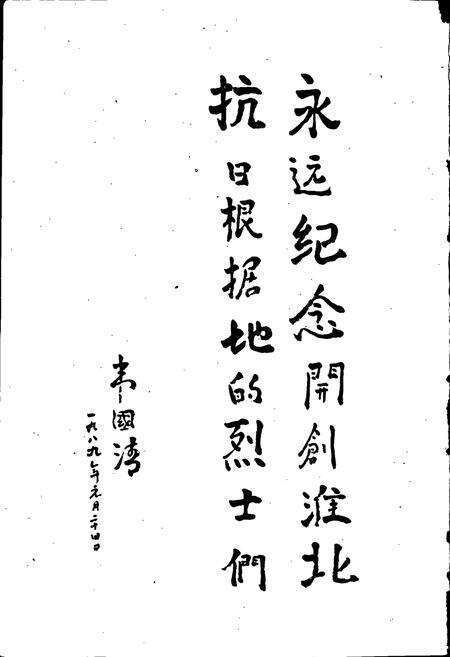 永远纪念開創淮北
抗日根据地的烈士們
韦國清
一九八九年元月二十四日